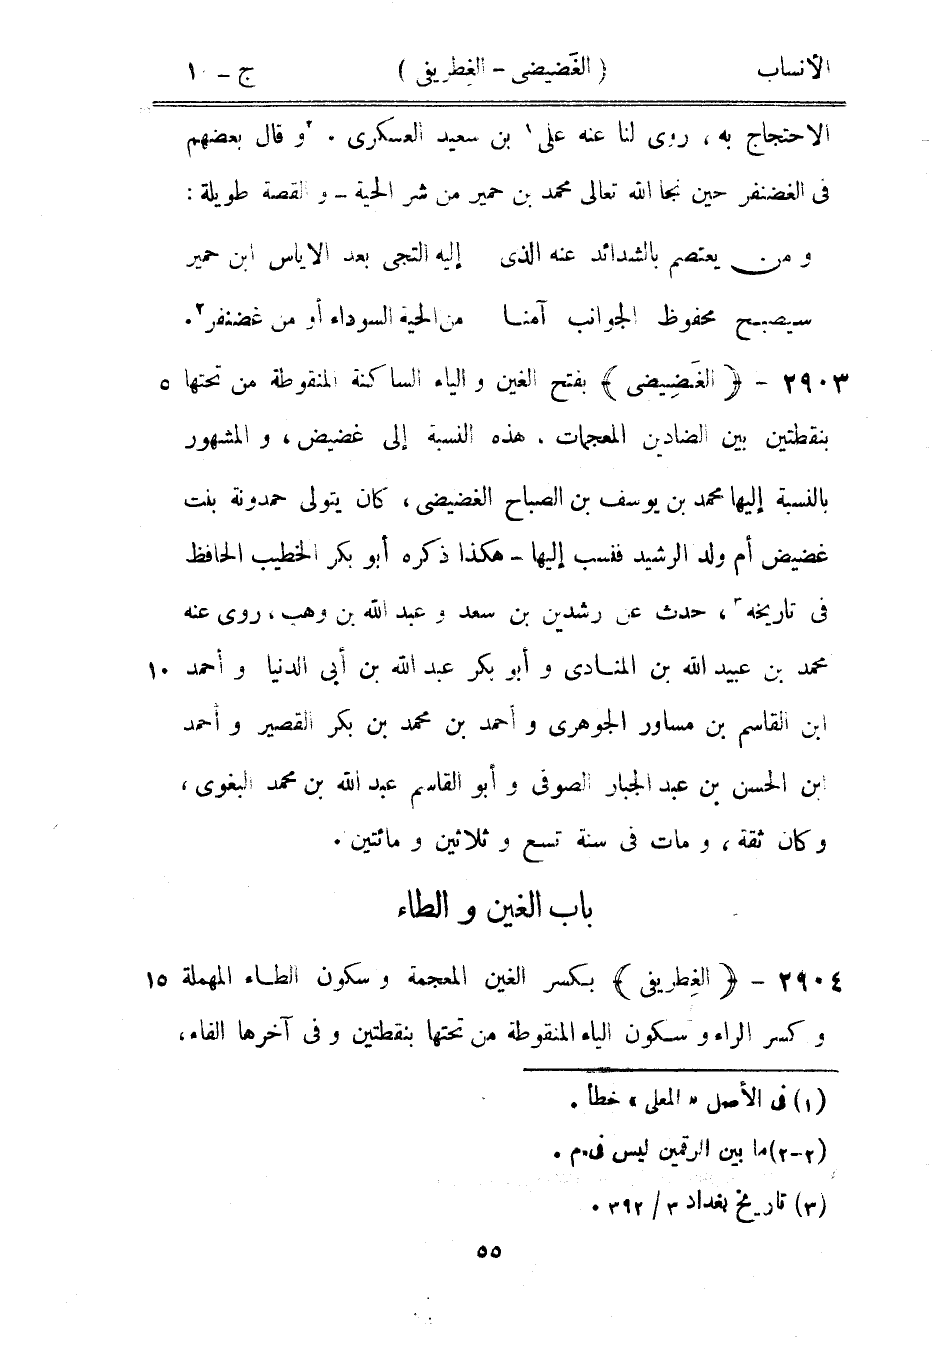 الأنساب ( الغَضيضى - الغِطريفى ) ج - ١٠
الاحتجاج به ، روى لنا عنه على١ بن سعيد العسكرى . ٢و قال بعضهم
فى الغضنفر حين نجا الله تعالى محمد بن حمير من شر الحية - و القصة طويلة :
و من يعتصم بالشدائد عنه الذى إليه التجى بعد الاياس ابن حمير
سيصبح محفوظ الجوانب آمنا من الحية السوداء أو من غضنفر٢.
٢٩٠٣ - ﴿ الغَضِيضى ﴾ بفتح الغين و الياء الساكنة المنقوطة من تحتها ٥
بنقطتين بين الضادين المعجمات . هذه النسبة إلى غضيض ، و المشهور
بالنسبة إليها محمد بن يوسف بن الصباح الغضيضى ، كان يتولى حمدونة بنت
غضيض أم ولد الرشيد فنسب إليها - هكذا ذكره أبو بكر الخطيب الحافظ
فى تاريخه٣ ، حدث عن رشدين بن سعد و عبد الله بن وهب ، روى عنه
محمد بن عبيد الله بن المنادى و أبو بكر عبد الله بن أبى الدنيا و أحمد ١٠
ابن القاسم بن مساور الجوهرى و أحمد بن محمد بن بكر القصير و أحمد
ابن الحسن بن عبد الجبار الصوفى و أبو القاسم عبد الله بن محمد البغوى ،
و كان ثقة ، و مات فى سنة تسع و ثلاثين و مائتين .
باب الغين و الطاء
٢٩٠٤ - ﴿ الغِطريفى ﴾ بكسر الغين المعجمة و سكون الطاء المهملة ١٥
و كسر الراء و سكون الياء المنقوطة من تحتها بنقطتين و فى آخرها الفاء ،
(١) فى الأصل « المعلى » خطأ .
(٢-٢) ما بين الرقمين ليس فى م .
(٣) تاريخ بغداد ٣ / ٣٩٢ .
٥٥